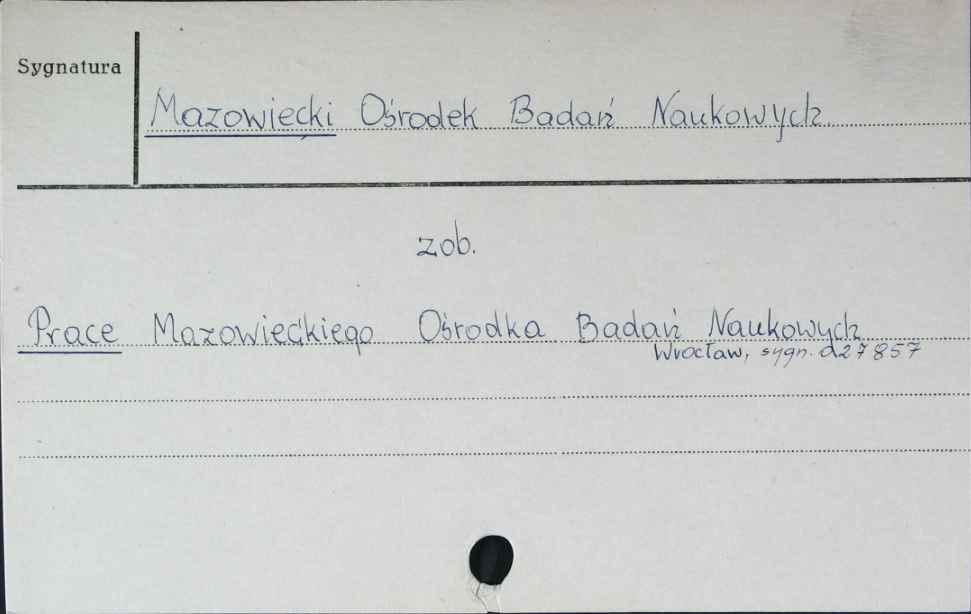 Sygnatura
Mazowiecki Ośrodek Badań Naukowych
zob.
Prace Mazowieckiego Ośrodka Badań Naukowych
Wrocław, sygn. d27857